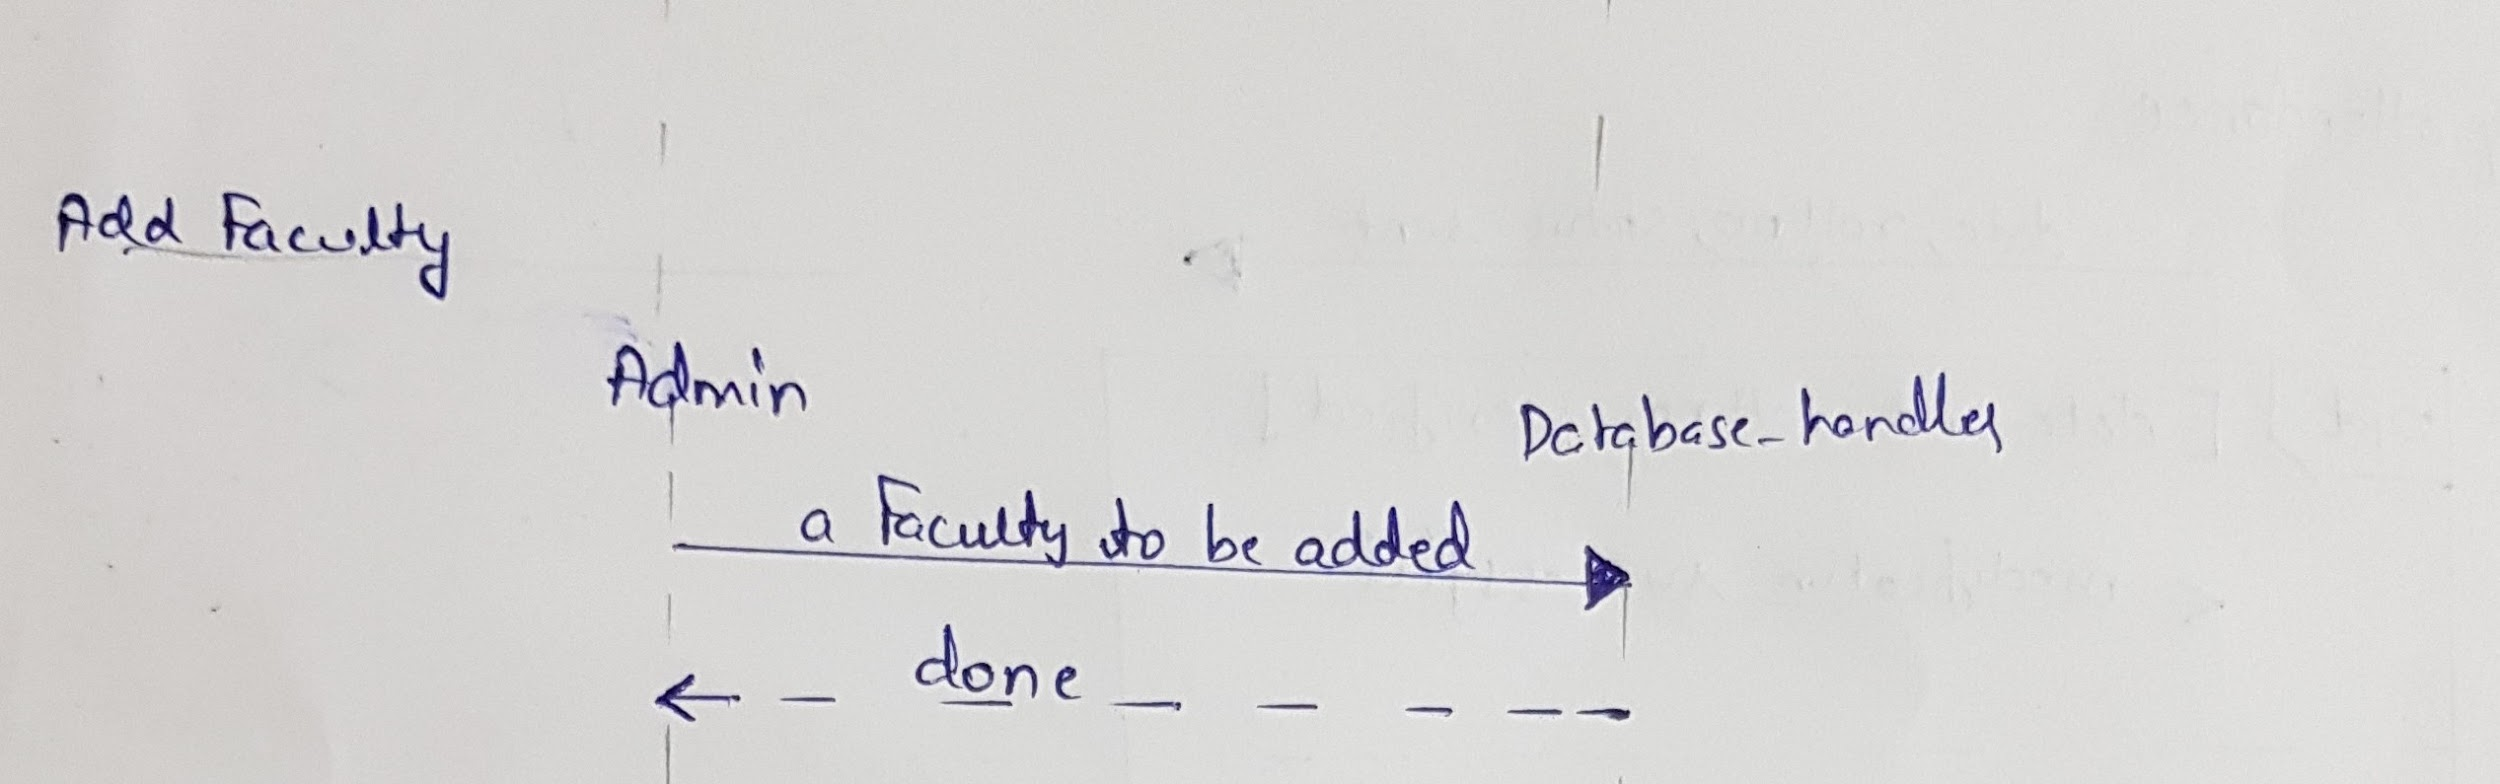 Add Faculty
Admin
Database_handler
a Faculty to be added
done